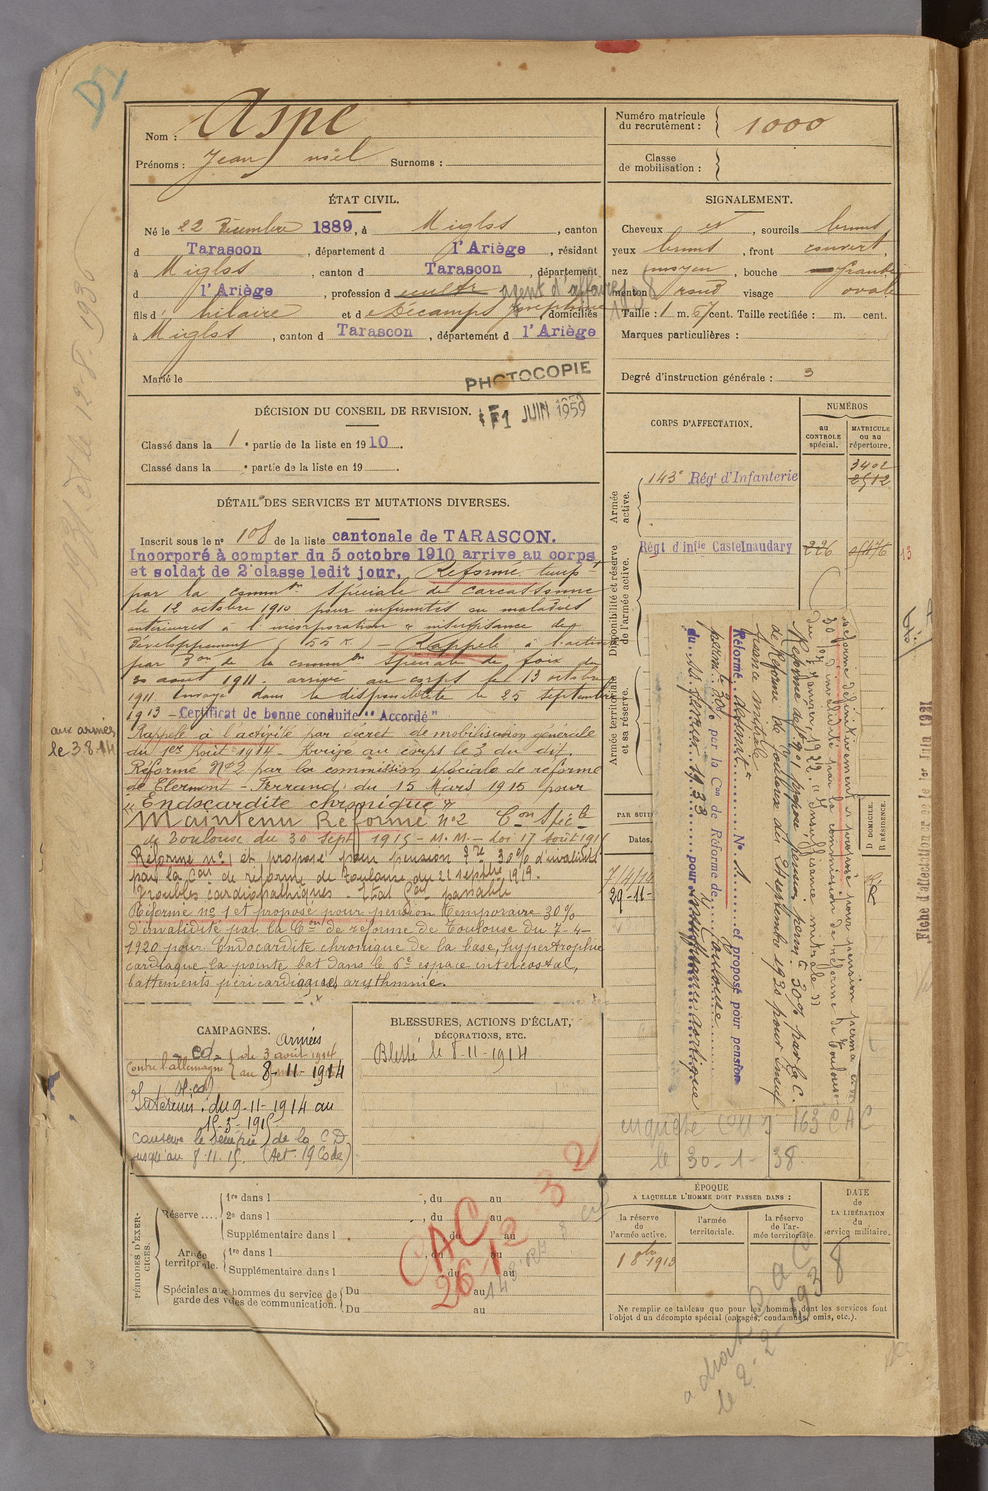 Nom : Aspe
Prénoms : Jean noël Surnoms :
Numéro matricule du recrutement : 1000
Classe de mobilisation :
ÉTAT CIVIL.
Né le 22 Décembre 1889, à Miglos, canton
d Tarascon, département d l'Ariège, résidant
à Miglos, canton d Tarascon, département
d l'Ariège, profession d cultr agent d'affaires
fils d' hilaire et de Décamps Joséphine, domiciliés
à Miglos, canton d Tarascon, département d l'Ariège
Marié le
PHOTOCOPIE
JUIN 1959
SIGNALEMENT.
Cheveux et, sourcils bruns
yeux bruns, front couvert
nez moyen, bouche grande
menton rond visage ovale
Taille : 1 m. 67 cent. Taille rectifiée : m. cent.
Marques particulières :
Degré d'instruction générale : 3
DÉCISION DU CONSEIL DE REVISION.
Classé dans la 1e partie de la liste en 1910.
Classé dans la e partie de la liste en 19
DÉTAIL DES SERVICES ET MUTATIONS DIVERSES.
Inscrit sous le no 108 de la liste cantonale de TARASCON.
Incorporé à compter du 5 octobre 1910 arrive au corps
et soldat de 2e classe ledit jour. Réformé tempt
par la common spéciale de Carcassonne
le 12 octobre 1910 pour infirmités ou maladies
antérieures à l'incorporation « insuffisance de
développement 55 K » - Rappelé à l'activité
par Don de la common spéciale de foix du
30 aout 1911. arrivé au corps le 13 octobre
1911. Envoyé dans la disponibilité le 25 septembre
1913 - Certificat de bonne conduite "Accordé"
Rappelé à l'activité par décret de mobilisation générale
du 1er Août 1914 - Dirigé au corps le 3 du dit.
aux armées
le 3.8.14
Réformé No 2 par la commission spéciale de réforme
de Clermont-Ferrand, du 15 Mars 1915 pour
"Endocardite chronique"
Maintenu Réformé no 2 Con Spéle
de Toulouse du 30 sept 1915 - M.M. - Loi 17 Août 1915
Réformé no 1 et proposé pour pension 30% d'invalidité
par la Con de réforme de Toulouse du 21 septbre 1919.
Troubles cardiopathiques. Etat Gal passable
Réformé no 1 et proposé pour pension temporaire 30%
d'invalidité par la Con de réforme de Toulouse du 7-4-
1920 pour Endocardite chronique de la base, hypertrophie
cardiaque la pointe bat dans le 6e espace intercostal,
battements péricardiaques, arythmie.
CORPS D'AFFECTATION.
NUMÉROS
au CONTRÔLE spécial.
MATRICULE ou au répertoire.
Armée active.
143e Régt d'Infanterie
3402
2512
Disponibilité et réserve de l'armée active.
Régt d'infie Castelnaudary 226
15
Armée territoriale et sa réserve.
Réformé définitivement et proposé pour pension permanente
30% d'invalidité par la commission de réforme de Toulouse
du 1er Janvier 1922. "Insuffisance mitrale"
Réformé no 1 proposé pension perm. à 30% par la C.
de Réforme de Toulouse du 24 septembre 1930 pour Insuf
fisance mitrale
Réformé définit No 1 et proposé pour pension
perm. de 30% par la Con de Réforme de Toulouse
du 22 février 1933 pour insuffisance aortique
PAR SUITE
Dates.
D DOMICILE.
R RÉSIDENCE.
29-11-
R
Fiche d'affectation
1er Juin 1931
CAMPAGNES.
Armées
Contre l'allemagne CD = de 3 août 1914
au 8-11-1914
Intérieur : du 9-11-1914 au
15-3-1915
conserve le bénéfice de la CD
jusqu'au 8.11.15. (Art. 19 Code)
BLESSURES, ACTIONS D'ÉCLAT,
DÉCORATIONS, ETC.
Blessé le 8-11-1914
163 CAC
le 30-1-38
PÉRIODES D'EXERCICES.
Réserve.... 1re dans l , du au
2e dans l , du au
Supplémentaire dans l , du au
Armée territoriale. 1re dans l , du au
Supplémentaire dans l , du au
Spéciales aux hommes du service de garde des voies de communication. Du au
Du au
CAC
26 12 32
ÉPOQUE
A LAQUELLE L'HOMME DOIT PASSER DANS :
la réserve de l'armée active.
l'armée territoriale.
la réserve de l'armée territoriale.
DATE de LA LIBÉRATION du service militaire.
1 8bre 1913
Ne remplir ce tableau que pour les hommes dont les services font
l'objet d'un décompte spécial (engagés, condamnés, omis, etc.).